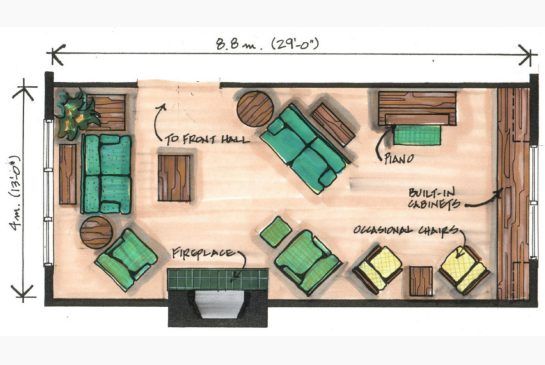 8.8 m. (29'-0")
4 m. (13'-0")
TO FRONT HALL
PIANO
BUILT-IN
CABINETS
OCCASIONAL CHAIRS
FIREPLACE